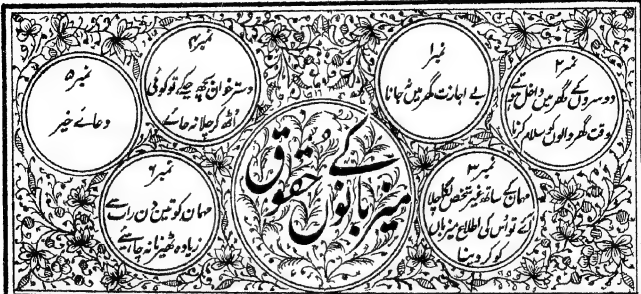 میزبانوں کے حقوق
نمبر ۱
بے اجازت گھر میں نہ جانا
نمبر ۲
دوسروں کے گھر میں داخل ہوتے
وقت گھر والوں کو سلام کرنا
نمبر ۳
مہمان کے ساتھ غیر شخص لگا چلا
آئے تو اُس کی اطلاع میزبان
کو کر دینا
نمبر ۴
دسترخوان بچھ چکے تو کوئی
اُٹھ کر چلا نہ جائے
نمبر ۵
دعائے خیر
نمبر ۶
مہمان کو تین دن رات سے
زیادہ ٹھہرنا نہ چاہئے